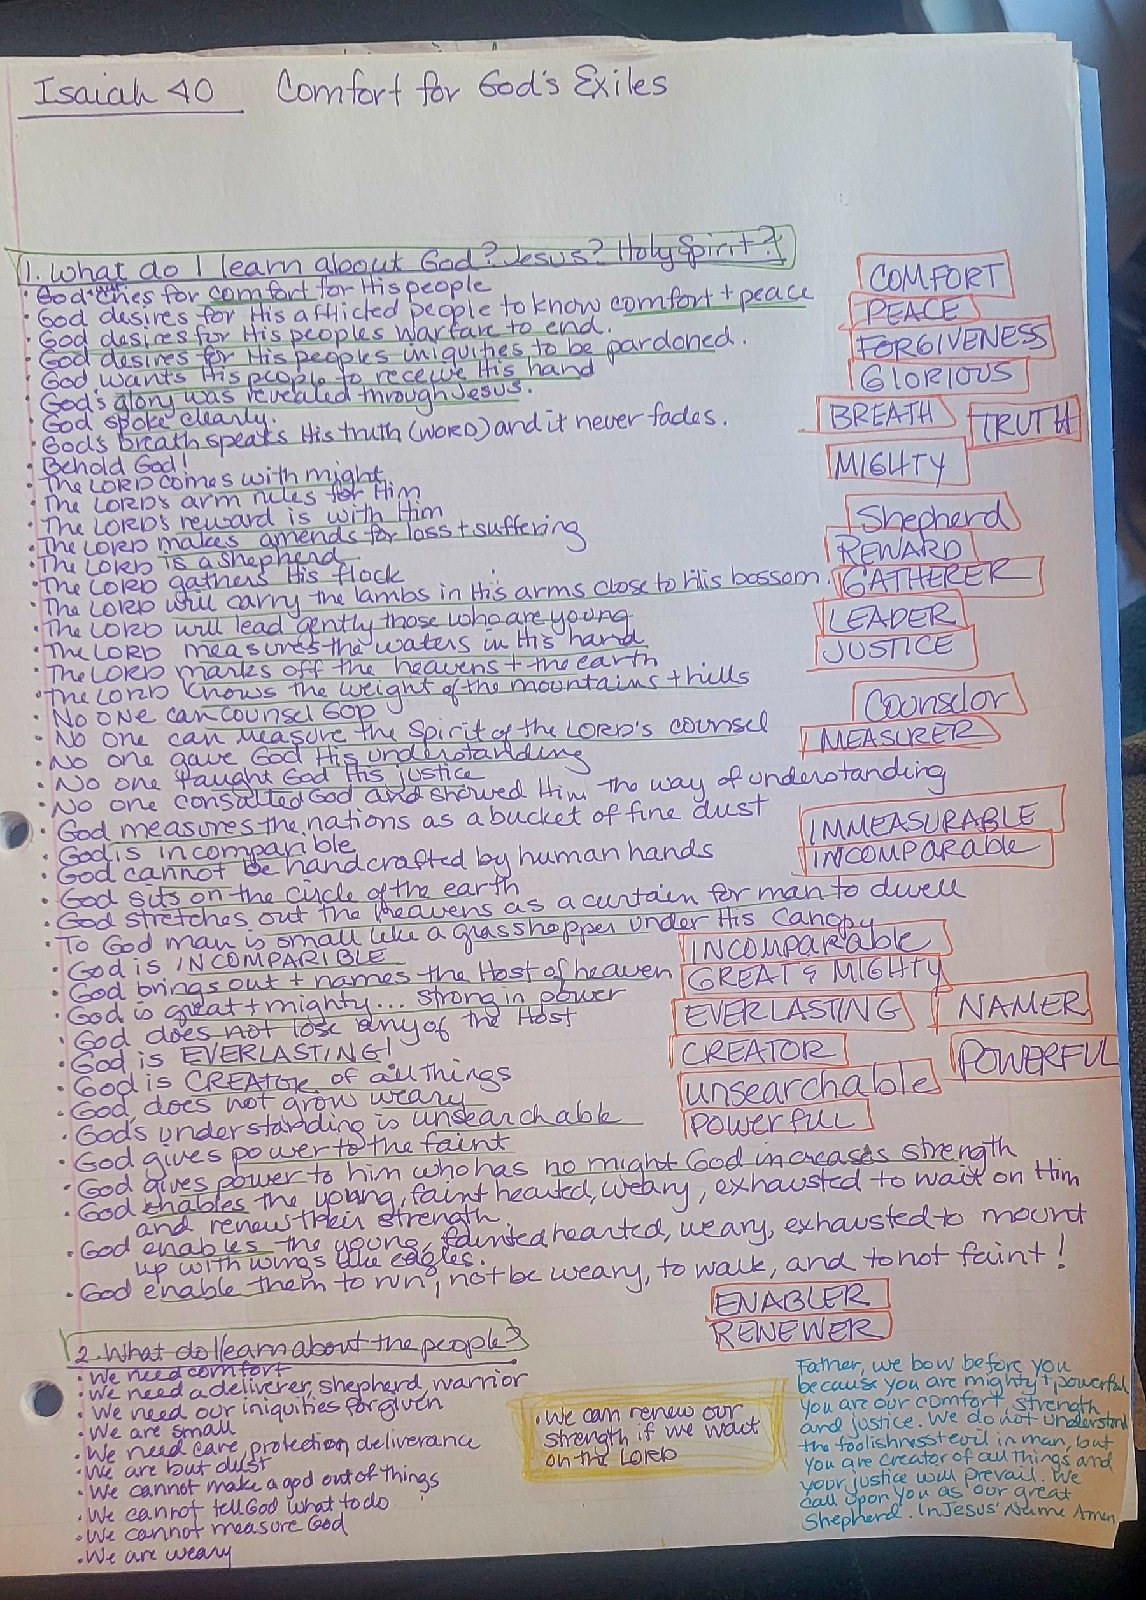 Isaiah 40 Comfort for God's Exiles
1. What do I learn about God? Jesus? Holy Spirit?
· God cries for comfort for His people
COMFORT
· God desires for His afflicted people to know comfort + peace
PEACE
· God desires for His peoples warfare to end.
FORGIVENESS
· God desires for His peoples iniquities to be pardoned.
· God wants His people to receive His hand
GLORIOUS
· God's glory was revealed through Jesus.
· God spoke clearly.
BREATH TRUTH
· God's breath speaks His truth (WORD) and it never fades.
· Behold God!
MIGHTY
· The LORD comes with might
· The LORD's arm rules for Him
· The LORD's reward is with Him
Shepherd
· The LORD makes amends for loss + suffering
REWARD
· The LORD is a shepherd
· The LORD gathers His flock
GATHERER
· The LORD will carry the lambs in His arms close to His bossom.
LEADER
· The LORD will lead gently those who are young
JUSTICE
· The LORD measures the waters in His hand
· The LORD marks off the heavens + the earth
· The LORD knows the weight of the mountains + hills
Counselor
· No ONE can counsel GOD
· No one can measure the Spirit of the LORD's counsel
MEASURER
· No one gave God His understanding
· No one taught God His justice
· No one consulted God and showed Him the way of understanding
· God measures the nations as a bucket of fine dust
IMMEASURABLE
· God is incomparible
INCOMPARABLE
· God cannot be handcrafted by human hands
· God sits on the circle of the earth
· God stretches out the heavens as a curtain for man to dwell
· To God man is small like a grasshopper under His canopy
INCOMPARABLE
· God is INCOMPARIBLE
GREAT & MIGHTY
· God brings out + names the Host of heaven
· God is great + mighty... strong in power
EVERLASTING NAMER
· God does not lose any of the Host
· God is EVERLASTING!
CREATOR POWERFUL
· God is CREATOR of all things
unsearchable
· God does not grow weary
POWERFUL
· God's understanding is unsearchable
· God gives power to the faint
· God gives power to him who has no might God increases strength
· God enables the young, faint hearted, weary, exhausted to wait on Him
and renew their strength
· God enables the young, fainted hearted, weary, exhausted to mount
up with wings like eagles.
· God enable them to run, not be weary, to walk, and to not faint!
ENABLER
RENEWER
2. What do I learn about the people?
· We need comfort
· We need a deliverer, shepherd, warrior
· We need our iniquities forgiven
· We are small
· We need care, protection, deliverance
· We are but dust
· We cannot make a god out of things
· We cannot tell God what to do
· We cannot measure God
· We are weary
· We can renew our
strength if we wait
on the LORD
Father, we bow before you
because you are mighty + powerful
You are our comfort, strength
and justice. We do not understand
the foolishness + evil in man, but
you are creator of all things and
your justice will prevail. We
call upon you as our great
Shepherd. In Jesus' Name Amen